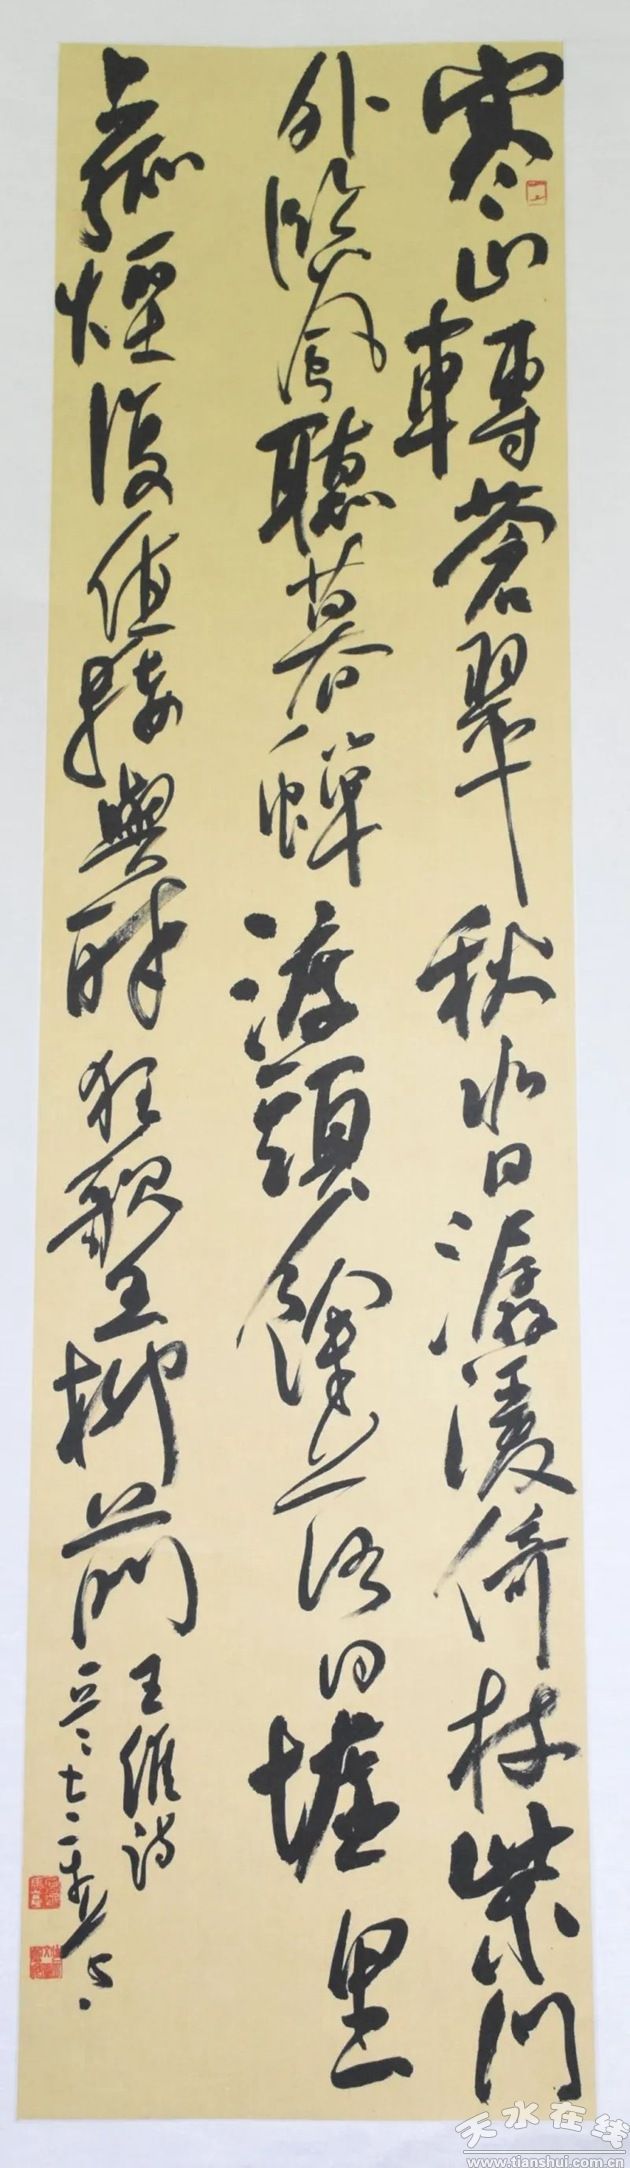 寒山轉蒼翠秋水日潺湲倚杖柴門
外臨風聽暮蟬渡頭餘落日墟里
上孤煙復值接輿醉狂歌五柳前
王維詩
天水在线
www.tianshui.com.cn